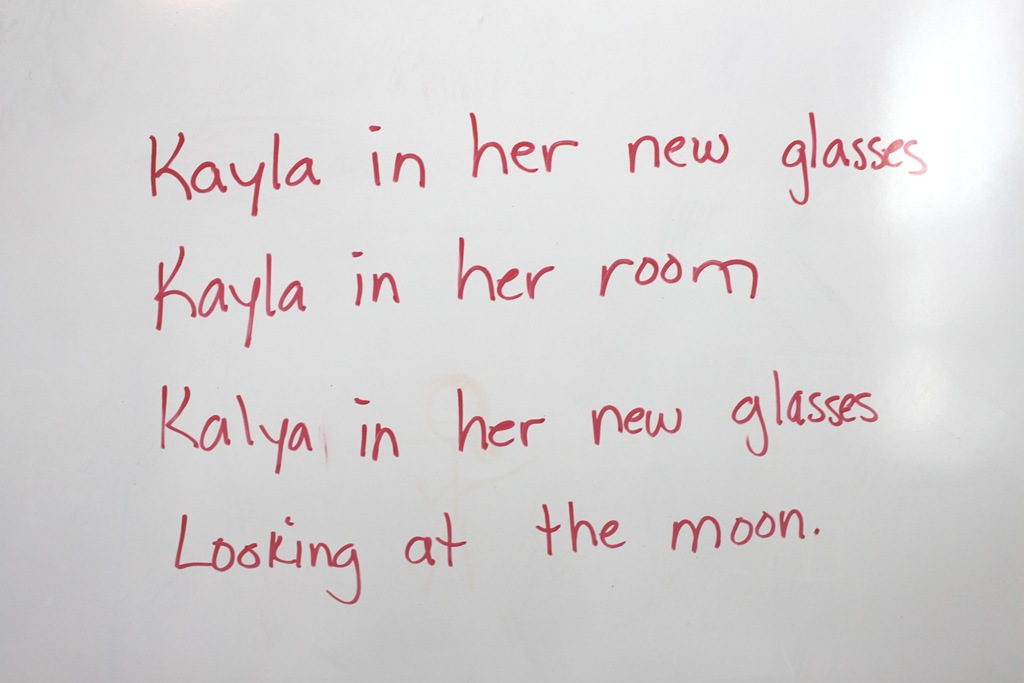 Kayla in her new glasses
Kayla in her room
Kalya in her new glasses
Looking at the moon.